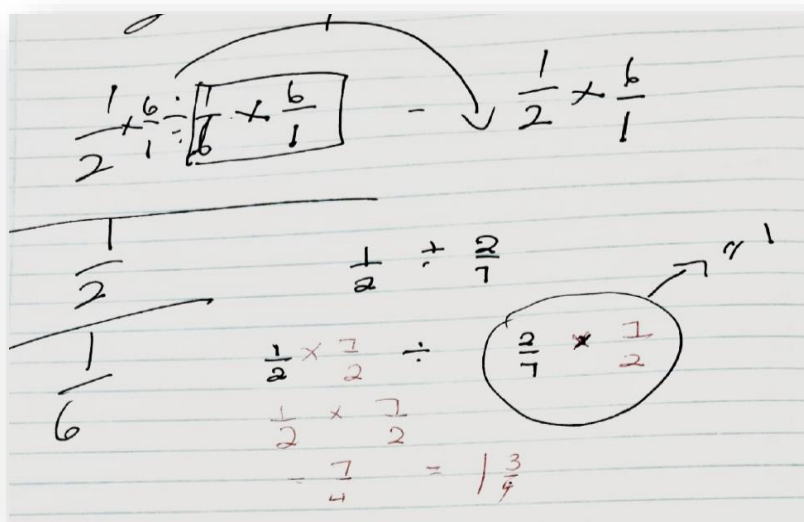 1/2 × 6/1 ÷ 1/6 × 6/1 - 1/2 × 6/1
1/2
1/6
1/2 ÷ 2/7
1/2 × 7/2 ÷ 2/7 × 7/2 → " 1
1/2 × 7/2
- 7/4 = 1 3/4